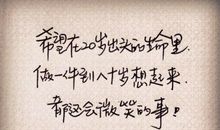 希望在20岁出头的生命里.
做一件到八十岁想起来.
都还会微笑的事!